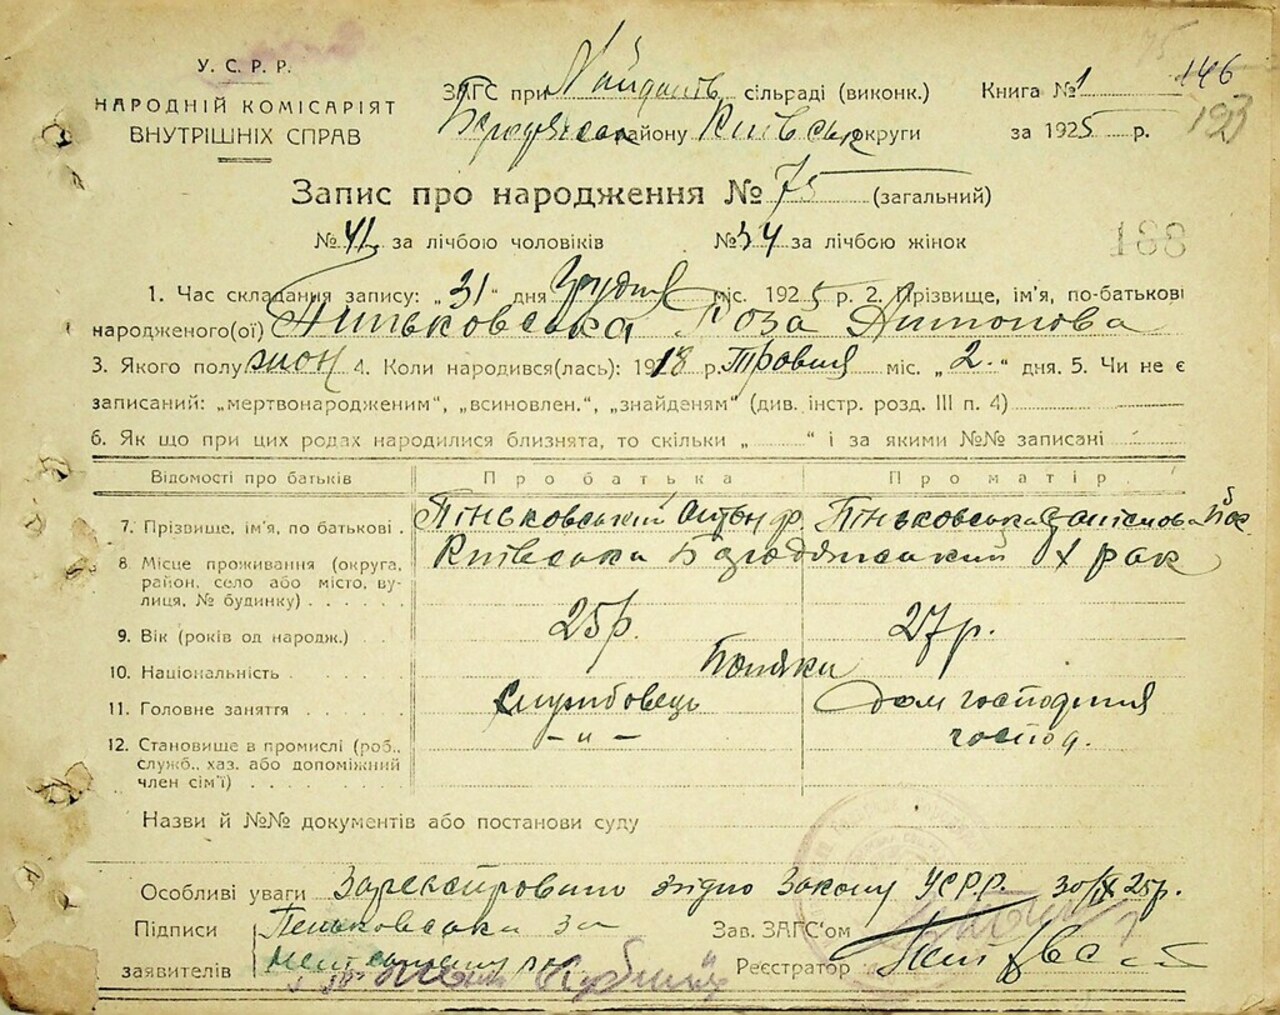 146
У. С. Р. Р.
НАРОДНІЙ КОМІСАРІЯТ
ВНУТРІШНІХ СПРАВ
ЗАГС при сільраді (виконк.)
району Київськ округи
Книга № 1
за 1925 р.
193
Запис про народження № 75 (загальний)
№ 41 за лічбою чоловіків № 34 за лічбою жінок
188
1. Час складання запису: „31" дня Грудня міс. 1925 р. 2. Прізвище, ім'я, по-батькові
народженого(ої) Піньковська Роза Антонова
3. Якого полу жон 4. Коли народився(лась): 1918 р. Травня міс. „2." дня. 5. Чи не є
записаний: „мертвонародженим", „всиновлен.", „знайденям" (див. інстр. розд. III п. 4)
6. Як що при цих родах народилися близнята, то скільки „ " і за якими №№ записані
Відомості про батьків Про батька Про матір
7. Прізвище, ім'я, по батькові . Піньковський Антон Піньковська
8. Місце проживання (округа, район, село або місто, вулиця, № будинку) Київська Бородянський
9. Вік (років од народж.) 25 р. 27 р.
10. Національність Поляки
11. Головне заняття Службовець Дом господиня
12. Становище в промислі (роб., служб., хаз. або допоміжний член сім'ї) – „ – господ.
Назви й №№ документів або постанови суду
Особливі уваги Зареєстровано згідно Закону УСРР. 30/IX 25р.
Підписи Пеньковська за
заявителів
Зав. ЗАГС'ом
Реєстратор